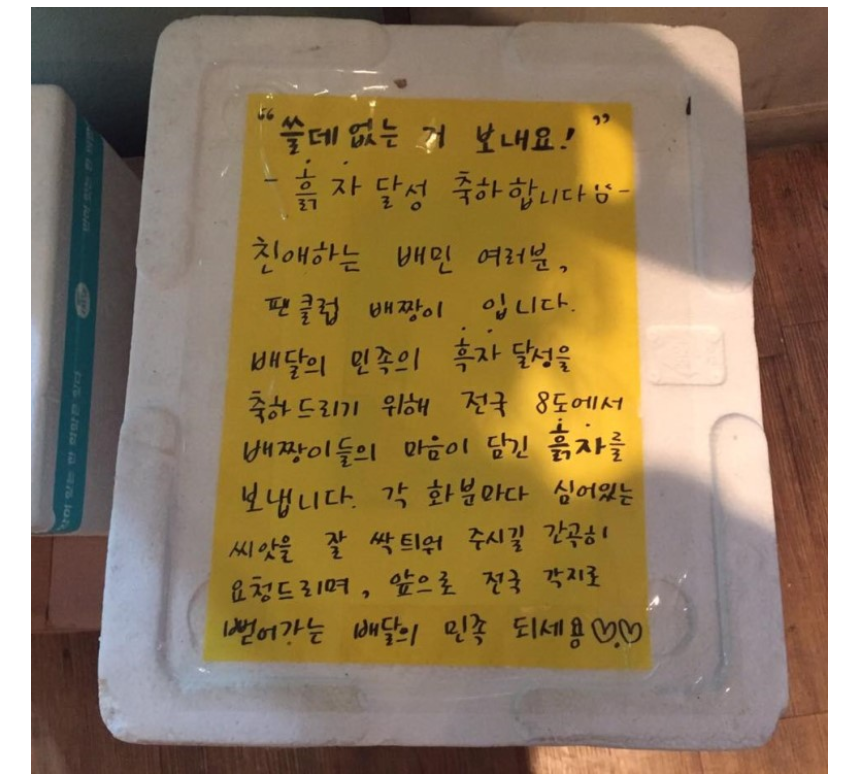 “쓸데없는 거 보내요!”
- 흙자 달성 축하합니다 -
친애하는 배민 여러분,
팬클럽 배짱이 입니다.
배달의 민족의 흑자 달성을
축하드리기 위해 전국 8도에서
배짱이들의 마음이 담긴 흙자를
보냅니다. 각 화분마다 심어있는
씨앗을 잘 싹틔워 주시길 간곡히
요청드리며, 앞으로 전국 각지로
뻗어가는 배달의 민족 되세용♡♡